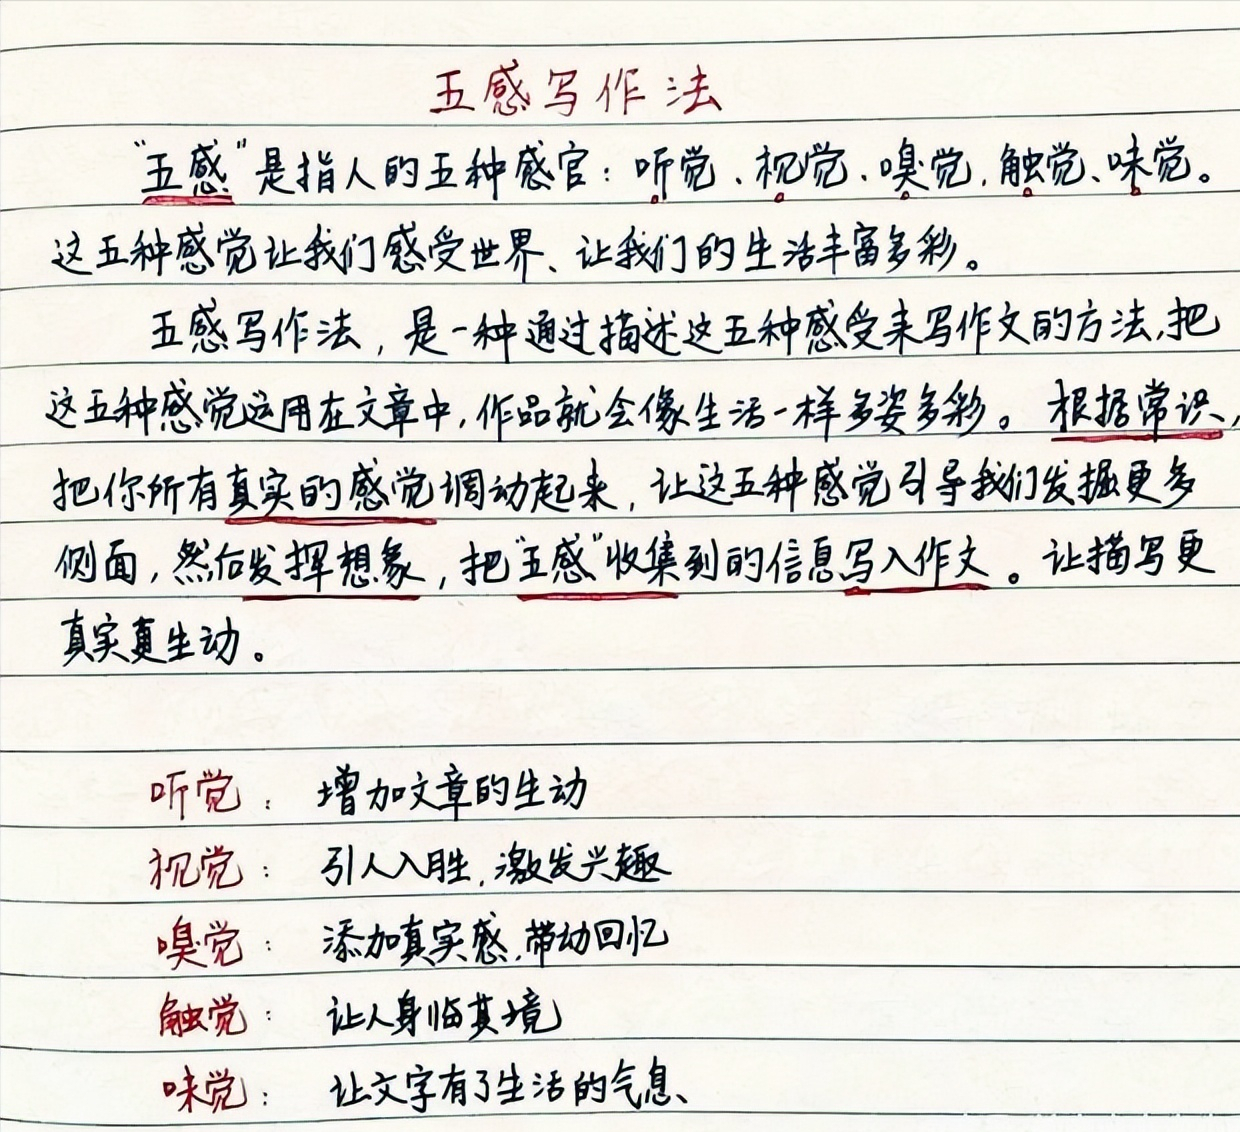 五感写作法
"五感"是指人的五种感官：听觉、视觉、嗅觉、触觉、味觉。
这五种感觉让我们感受世界、让我们的生活丰富多彩。
五感写作法，是一种通过描述这五种感受来写作文的方法，把
这五种感觉运用在文章中，作品就会像生活一样多姿多彩。根据常识，
把你所有真实的感觉调动起来，让这五种感觉引导我们发掘更多
侧面，然后发挥想象，把"五感"收集到的信息写入作文。让描写更
真实更生动。
听觉：增加文章的生动
视觉：引人入胜，激发兴趣
嗅觉：添加真实感，带动回忆
触觉：让人身临其境
味觉：让文字有了生活的气息、